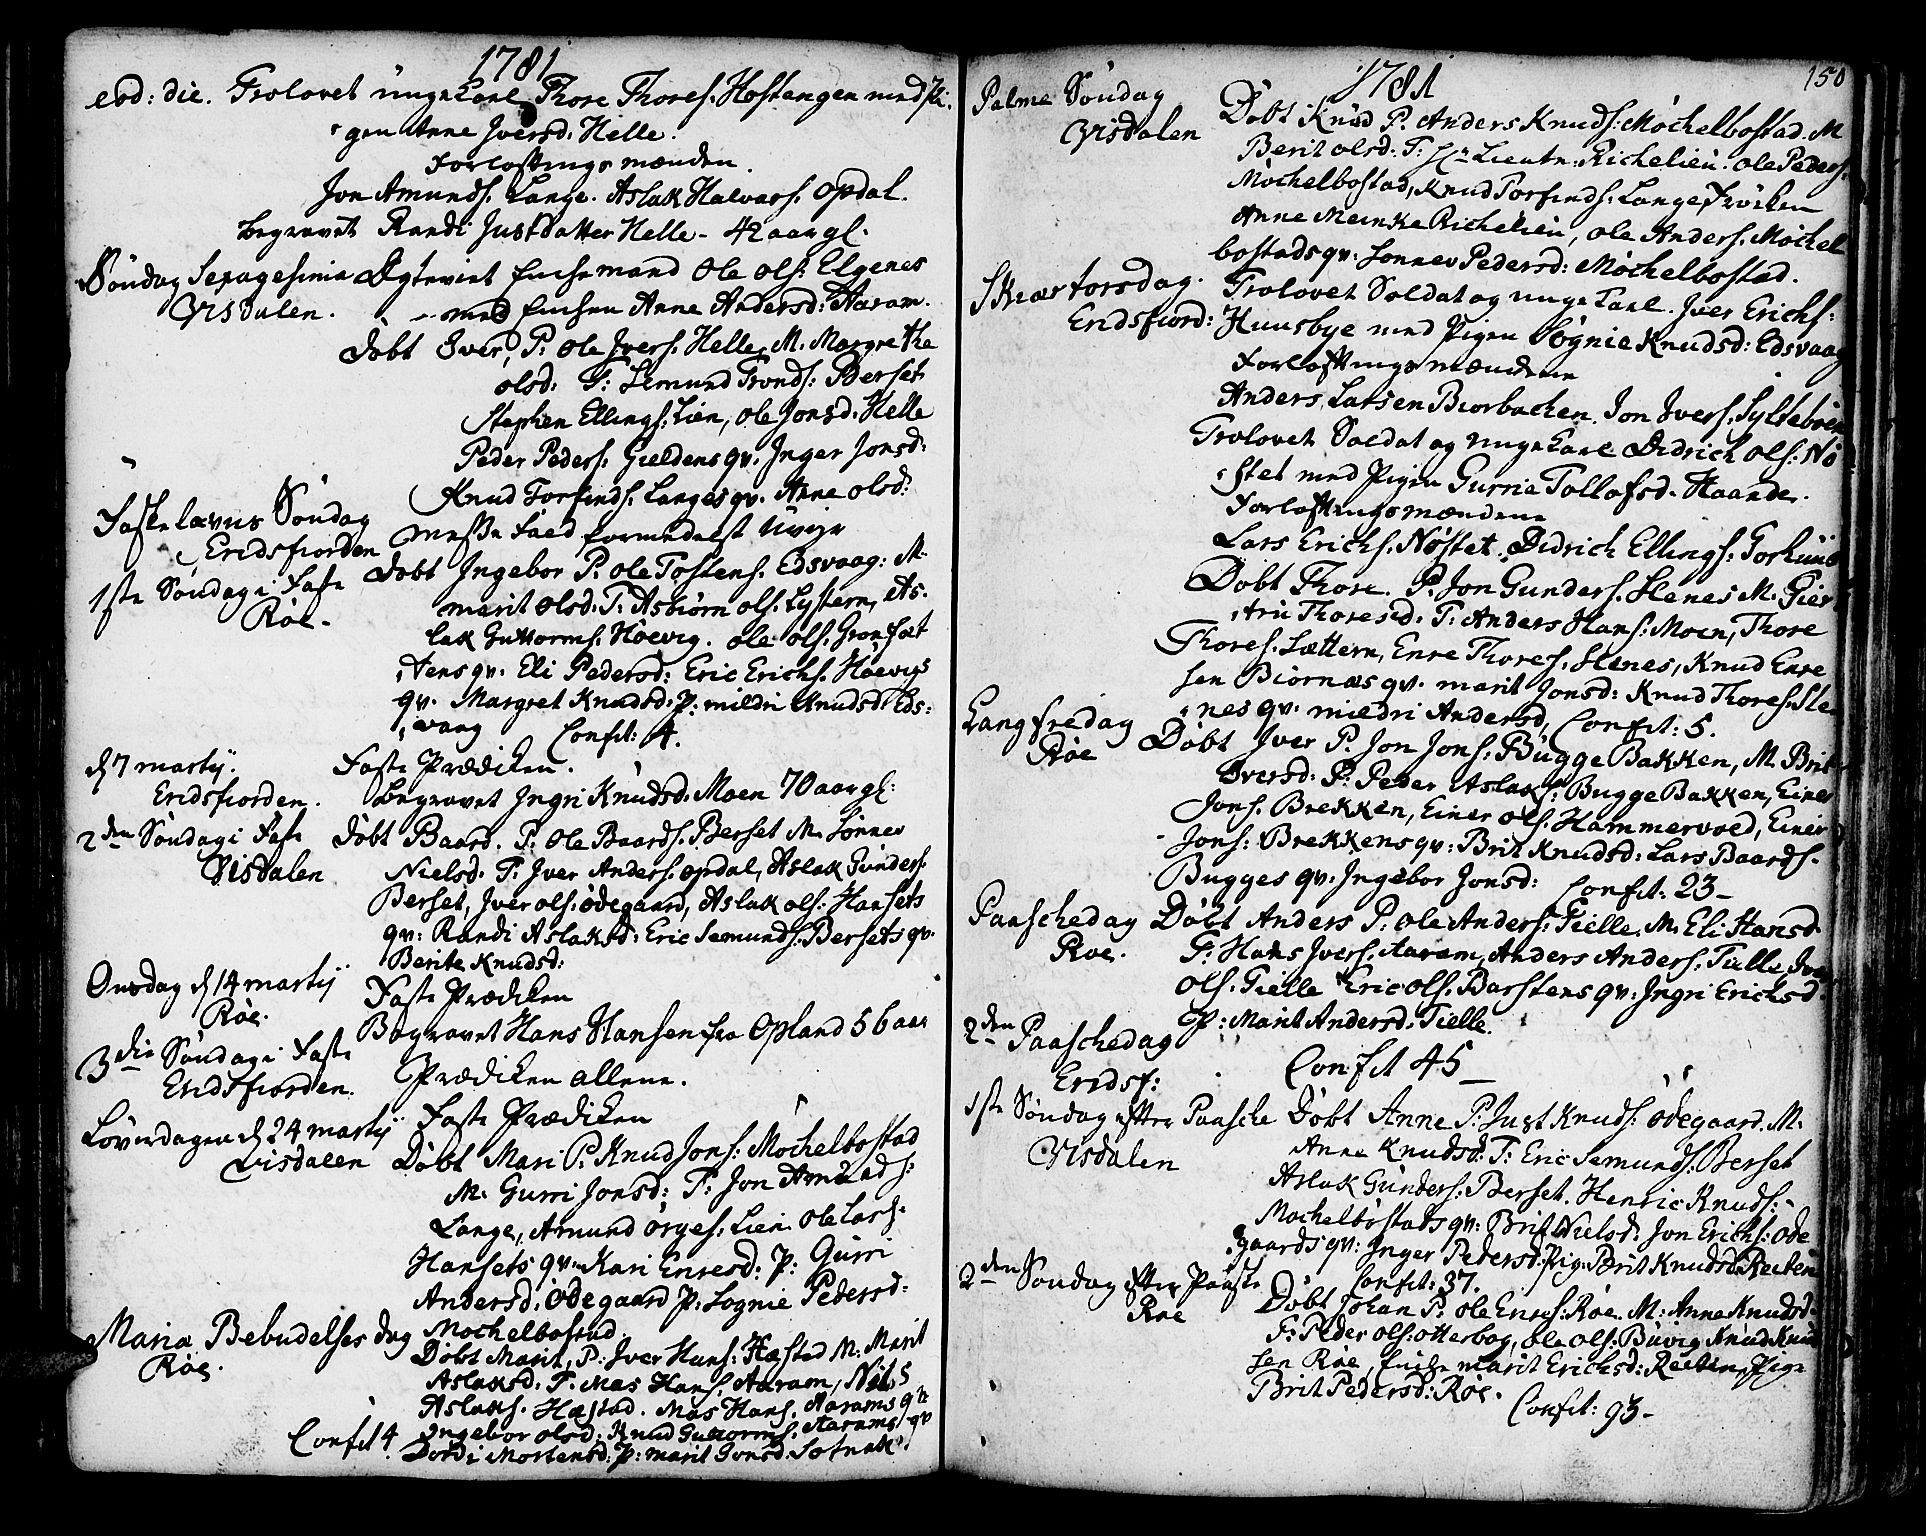 1781
eod: die. Trolovet unge Karl Thore Thores. Hostangen med Pi-
gen Anne Iversd. Helle.
Forlostings mænden
Jon Amunds. Lange. Aslak Halvars. Opdal.
begravet Randi Justdatter Helle - 42 aar gl.
Søndag Sexagesima Ægteviet Enchemand Ole Ols: Elgenes
Visdalen. med Enchen Anne Andersd: Aaram.
døbt Iver, P. Ole Ivers. Helle, M. Margrethe
Olsd: T: Semund Tronds: Berset
Stephen Ellings. Lien, Ole Jonsd. Helle
Peder Peders. Gieldens qv. Inger Jonsd:
Knud Torfinds. Langes qv. Anne Olsd:
Fastelavns Søndag
Eridsfiorden Messe Faed formedelst Uveir
1ste Søndag i Faste døbt Ingebor P. Ole Tostens. Edsvaag: M.
Røe. Marit Olsd. T. Asbiørn Ols. Lystern, As-
lak Guttorms. Høevig. Ole Ols. Gronfæt
tens qv. Eli Pedersd: Eric Erichs. Høevigs
qv. Margret Knudsd. P: Mildri Knudsd Eds-
vaag Confit: 4.
d 7 martij. Faste Prædiken.
Eridsfiorden. begravet Ingri Knudsd. Moen 70 aar gl:
2den Søndag i Faste døbt Baard. P. Ole Baards. Berset M. Sønnev
Visdalen Nielsd. T. Iver Anders. Opdal, Aslak Gunders.
Berset, Iver Ols: Ødegaard, Aslak Ols: Hansets
qv: Randi Aslaksd: Eric Semunds. Bersets qv.
Berite Knudsd:
Onsdag d 14 martij Faste Prædiken
Røe. Begravet Hans Hansen fra Opland 56 aar
3die Søndag i Faste
Eridsfiorden. Prædiken allene.
Løverdagen d 24 martij Faste Prædiken
Visdalen Døbt Mari P. Knud Jons: Mochelbostad
M. Gurri Jonsd: T: Jon Amunds:
Lange, Amund Ørges. Lien. Ole Lars:
Hansets qv: Kari Enresd: P: Gurri
Andersd: Ødegaard P: Sognie Pedersd:
Mochelbostad
Mariæ Bebudelses dag Døbt Marit, P: Iver Hans: Hæstad M: Marit
Røe. Aslaksd: T. Mas Hans. Aaram, Nils
Aslaks. Hæstad. Mas Hans. Aarams qv
Ingebor Olsd: Knud Guttorms. Aarams qv
Confit 4. Dordi Mortensd: P: Marit Gonsd.
150
1781
Palme Søndag Døbt Knud P. Anders Knuds: Mochelbostad. M
Visdalen Berit Olsd: T: Hr Lieutn. Richelieu. Ole Peders.
Mochelbostad, Knud Torfinds: Lange Frøiken
Anne Meinke Richelieu, Ole Anders. Mochel
bostads qv: Sonnev Pedersd: Mochelbostad.
Skiær torsdag. Trolovet Soldat og unge Karl. Iver Erichs:
Eridsfiord: Huusbye med Pigen Sognie Knudsd: Edsvaag
Forlostings mændene
Anders Larsen Biorbachen. Jon Ivers. Sylteboen
Trolovet Soldat og unge Karl Didrich Ols: Nø
stet med Pigen Gurrie Tollofsd. Haande.
Forlostings mændene
Lars Erichs. Nøstet, Didrich Ellings: Torhuus
Døbt Thore. P. Jon Gunders. Stenes M. Gier
tru Thoresd. T: Anders Hans: Moen, Thore
Thores. Sættern, Enre Thores. Stenes, Knud Enre
sen Biornæs qv. Marit Jonsd: Knud Thores. Ste
nes qv. Mildri Andersd. Confit: 5.
Langfredag Døbt Iver P. Jon Jons: Bugge Bakken, M. Brit
Røe Iversd: T: Peder Aslaks: Bugge Bakken, Einer
Jons. Brekken, Einer Ols. Hammervoed, Einer
Jons: Brekkens qv: Brit Knudsd: Lars Baards.
Bugges qv. Ingebor Jonsd: Confit: 23-
Paaschedag Døbt Anders P. Ole Anders: Tielle, M. Eli Hansd.
Røe. T: Hans Ivers. Aaram, Anders Anders: Tielle, Iver
Ols. Tielle Eric Ols. Barstens qv: Ingri Erichsd.
P: Marit Andersd: Tielle.
2den Paaschedag
Eridsf: Confit 45
1ste Søndag efter Paasche Døbt Anne P. Just Knuds: Ødegaard. M.
Visdalen Anne Knudsd. T: Eric Semunds. Berset
Aslak Gunders: Berset. Henric Knuds:
Mochelbostads qv: Brit Nielsd: Jon Erichs: Øde
gaards qv: Inger Pedersd: Pig. Bærit Knudsd: Reiten
Confit: 37.
2den Søndag efter Paaske Døbt Johan P. Ole Enres. Røe. M: Anne Knudsd.
Røe T: Peder Ols: Otterbog, Ole Ols: Buvig Knud Knud
sen Røe, Enche Marit Erichsd: Reiten, Pige
Brit Pedersd: Røe. Confit: 93-